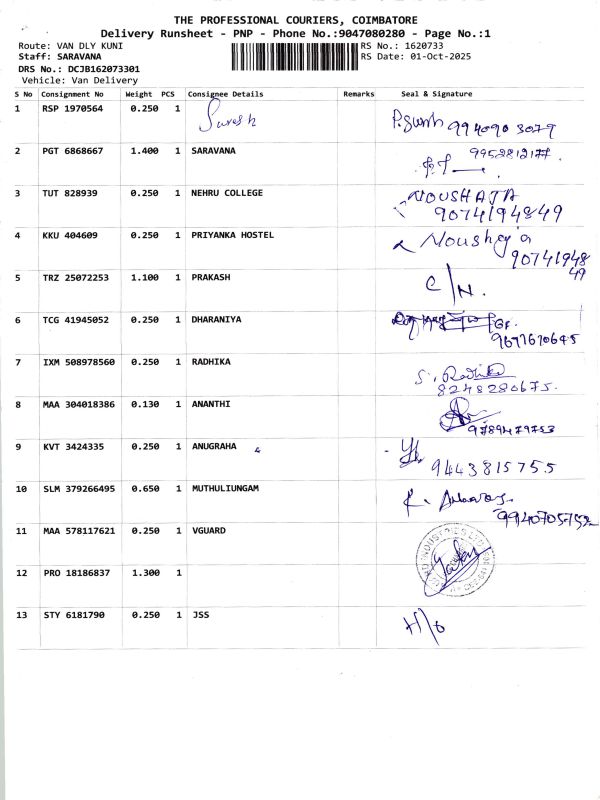 THE PROFESSIONAL COURIERS, COIMBATORE
Delivery Runsheet - PNP - Phone No.:9047080280 - Page No.:1
Route: VAN DLY KUNI RS No.: 1620733
Staff: SARAVANA RS Date: 01-Oct-2025
DRS No.: DCJB162073301
Vehicle: Van Delivery
S No Consignment No Weight PCS Consignee Details Remarks Seal & Signature
1 RSP 1970564 0.250 1 Suresh 994090 3079
2 PGT 6868667 1.400 1 SARAVANA 9952812177.
3 TUT 828939 0.250 1 NEHRU COLLEGE NOUSHAJA
9074194849
4 KKU 404609 0.250 1 PRIYANKA HOSTEL
90741948
49
5 TRZ 25072253 1.100 1 PRAKASH C/N.
6 TCG 41945052 0.250 1 DHARANIYA
9677670645
7 IXM 508978560 0.250 1 RADHIKA S. Radhika
8248280675.
8 MAA 304018386 0.130 1 ANANTHI
9789479753
9 KVT 3424335 0.250 1 ANUGRAHA
9443815755
10 SLM 379266495 0.650 1 MUTHULIUNGAM
9940705752
11 MAA 578117621 0.250 1 VGUARD
12 PRO 18186837 1.300 1
13 STY 6181790 0.250 1 JSS H/O